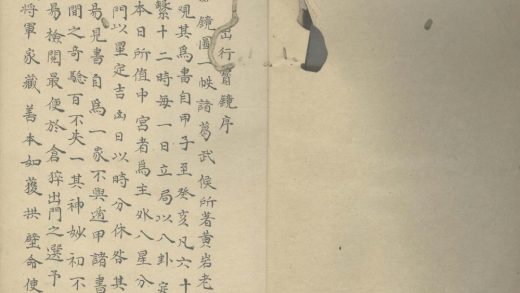 出行寳鏡序
鏡圖一帙諸葛武侯所著黄岩老
現其爲書自甲子至癸亥凡六十
繫十二時每一日立局以八卦定
本日所值中宫者爲主外八星分
門以星定吉凶日以時分休咎其
易見書自爲一家不與遁甲諸書
間之奇騐百不失一其神妙初不
易檢閱最便於倉猝出門之選予
將軍家藏善本如獲拱璧命使